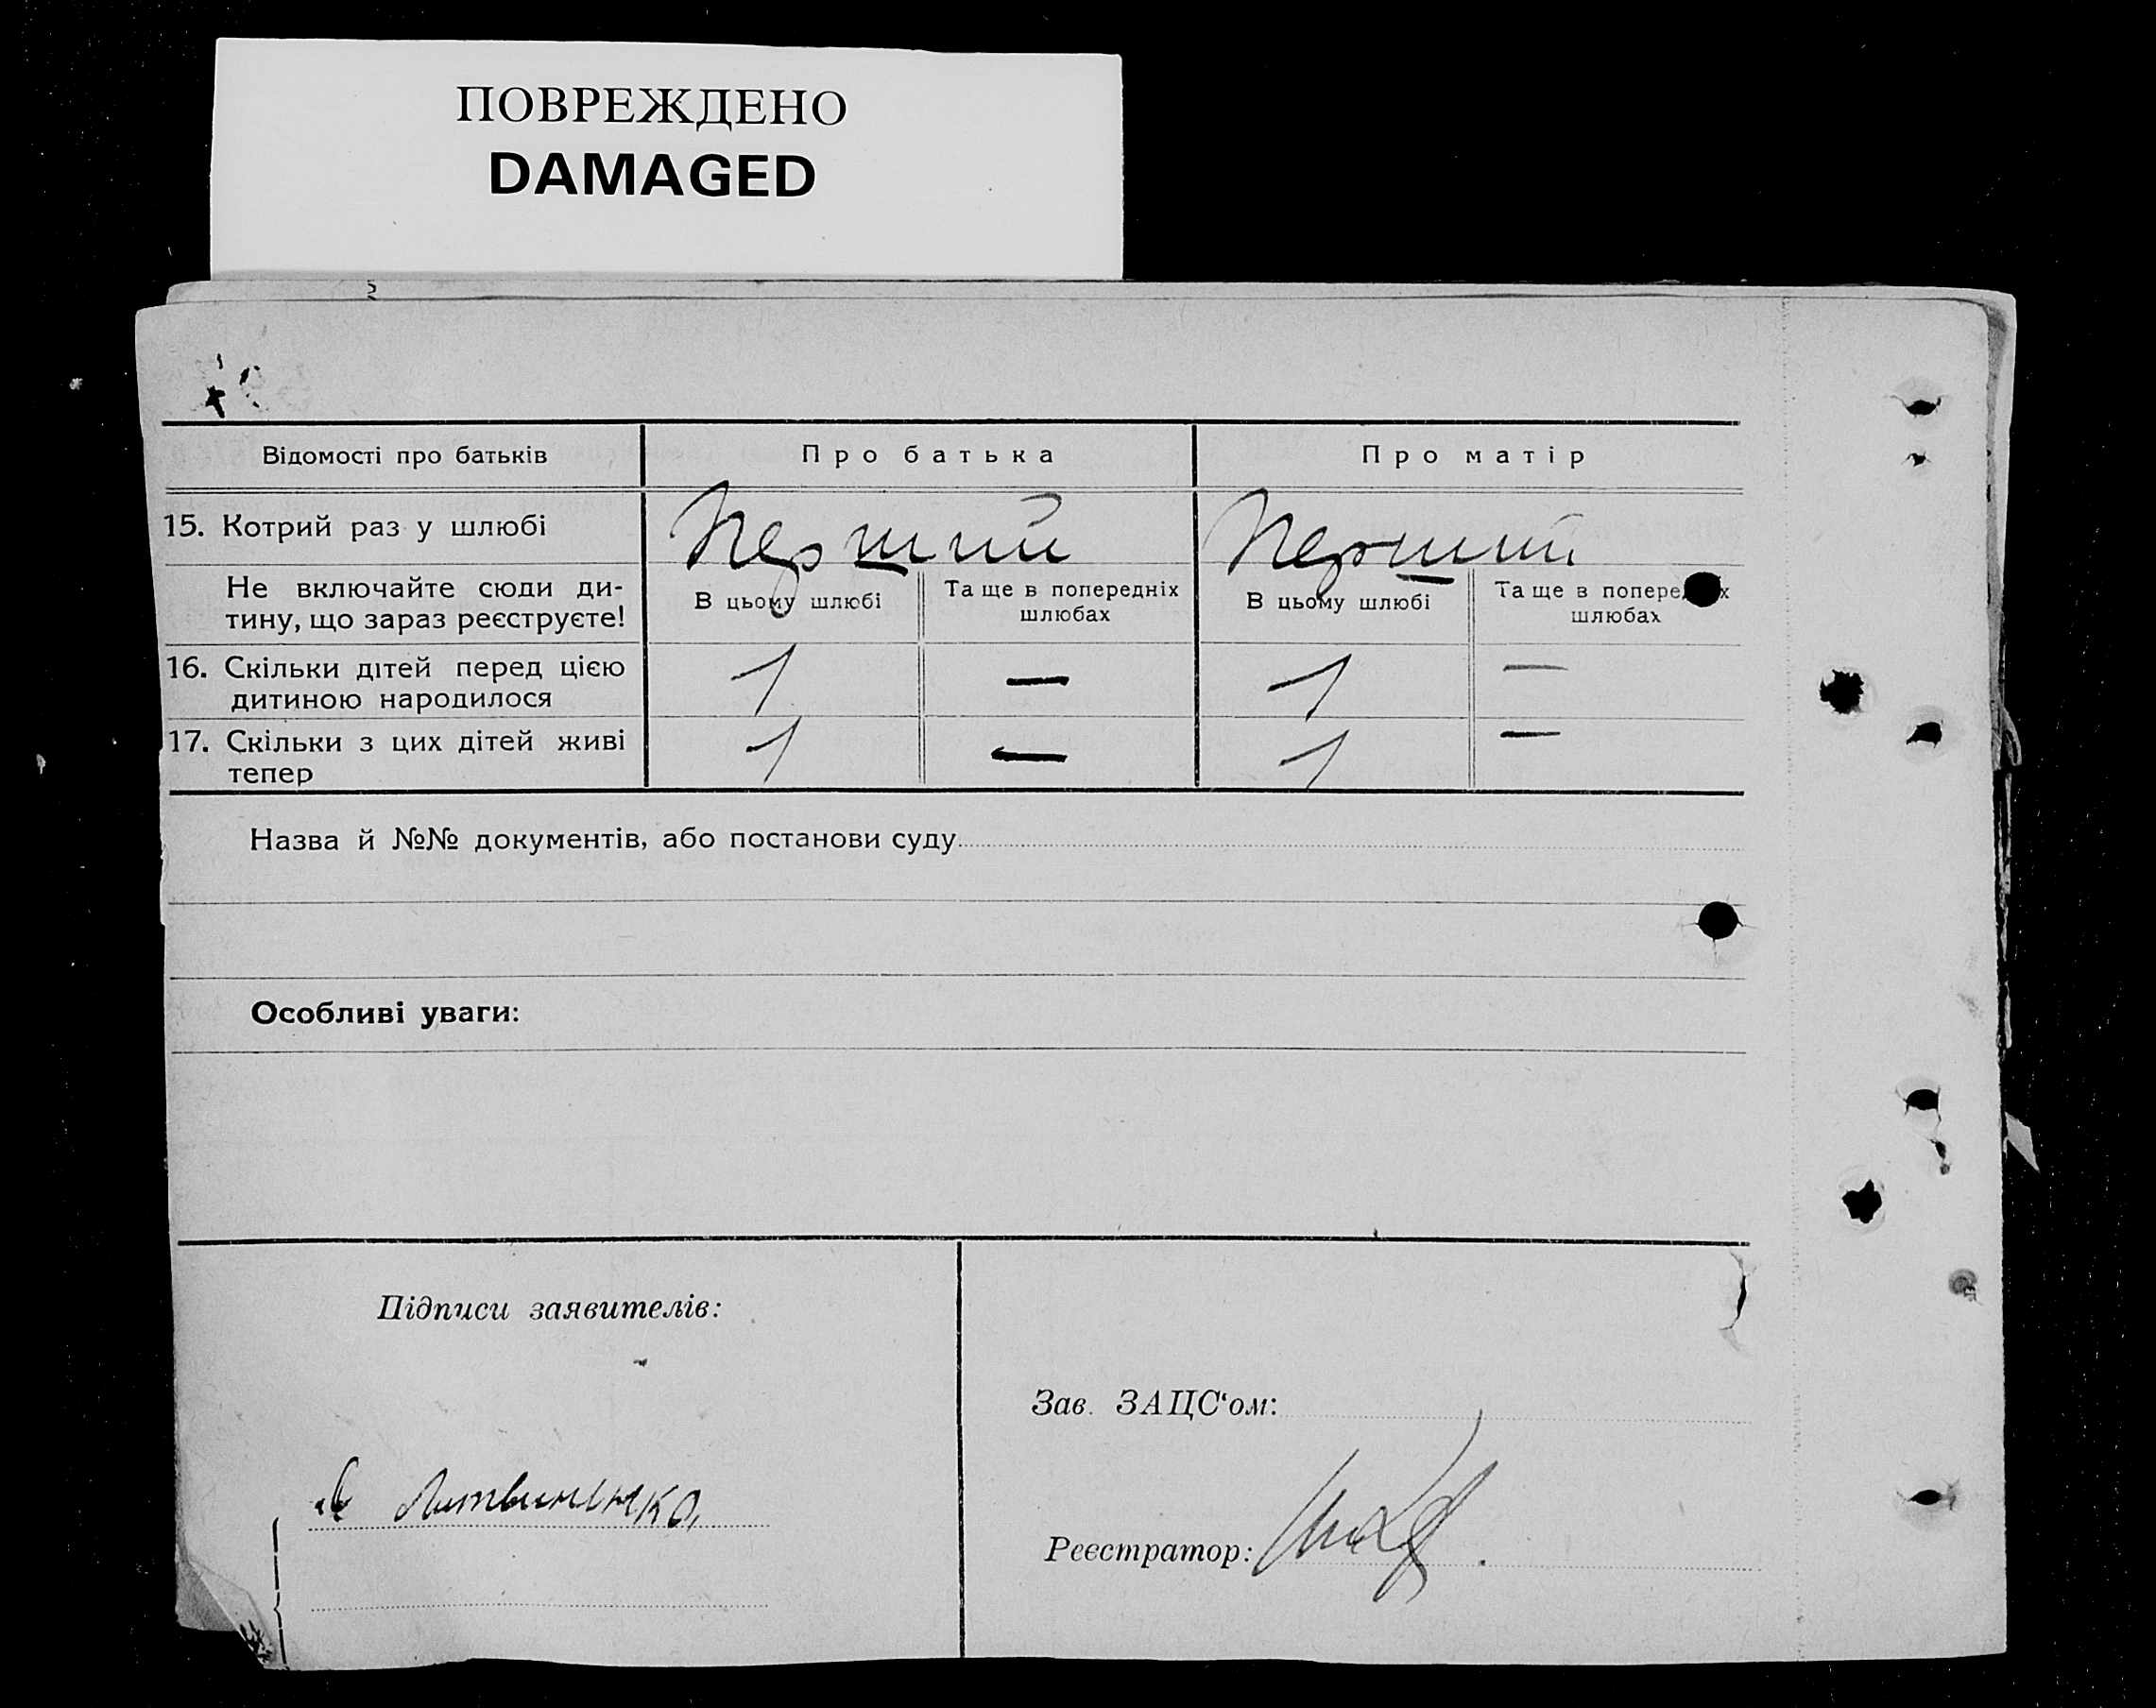 ПОВРЕЖДЕНО
DAMAGED
Відомості про батьків
Про батька
Про матір
15. Котрий раз у шлюбі
Перший
Перший
Не включайте сюди ди-
тину, що зараз реєструєте!
В цьому шлюбі
Та ще в попередніх
шлюбах
В цьому шлюбі
Та ще в
шлюбах
16. Скільки дітей перед цією
дитиною народилося
1
—
1
—
17. Скільки з цих дітей живі
тепер
1
—
1
—
Назва й №№ документів, або постанови суду
Особливі уваги:
Підписи заявителів:
Литвиненко
Зав. ЗАЦС‘ом:
Реєстратор: